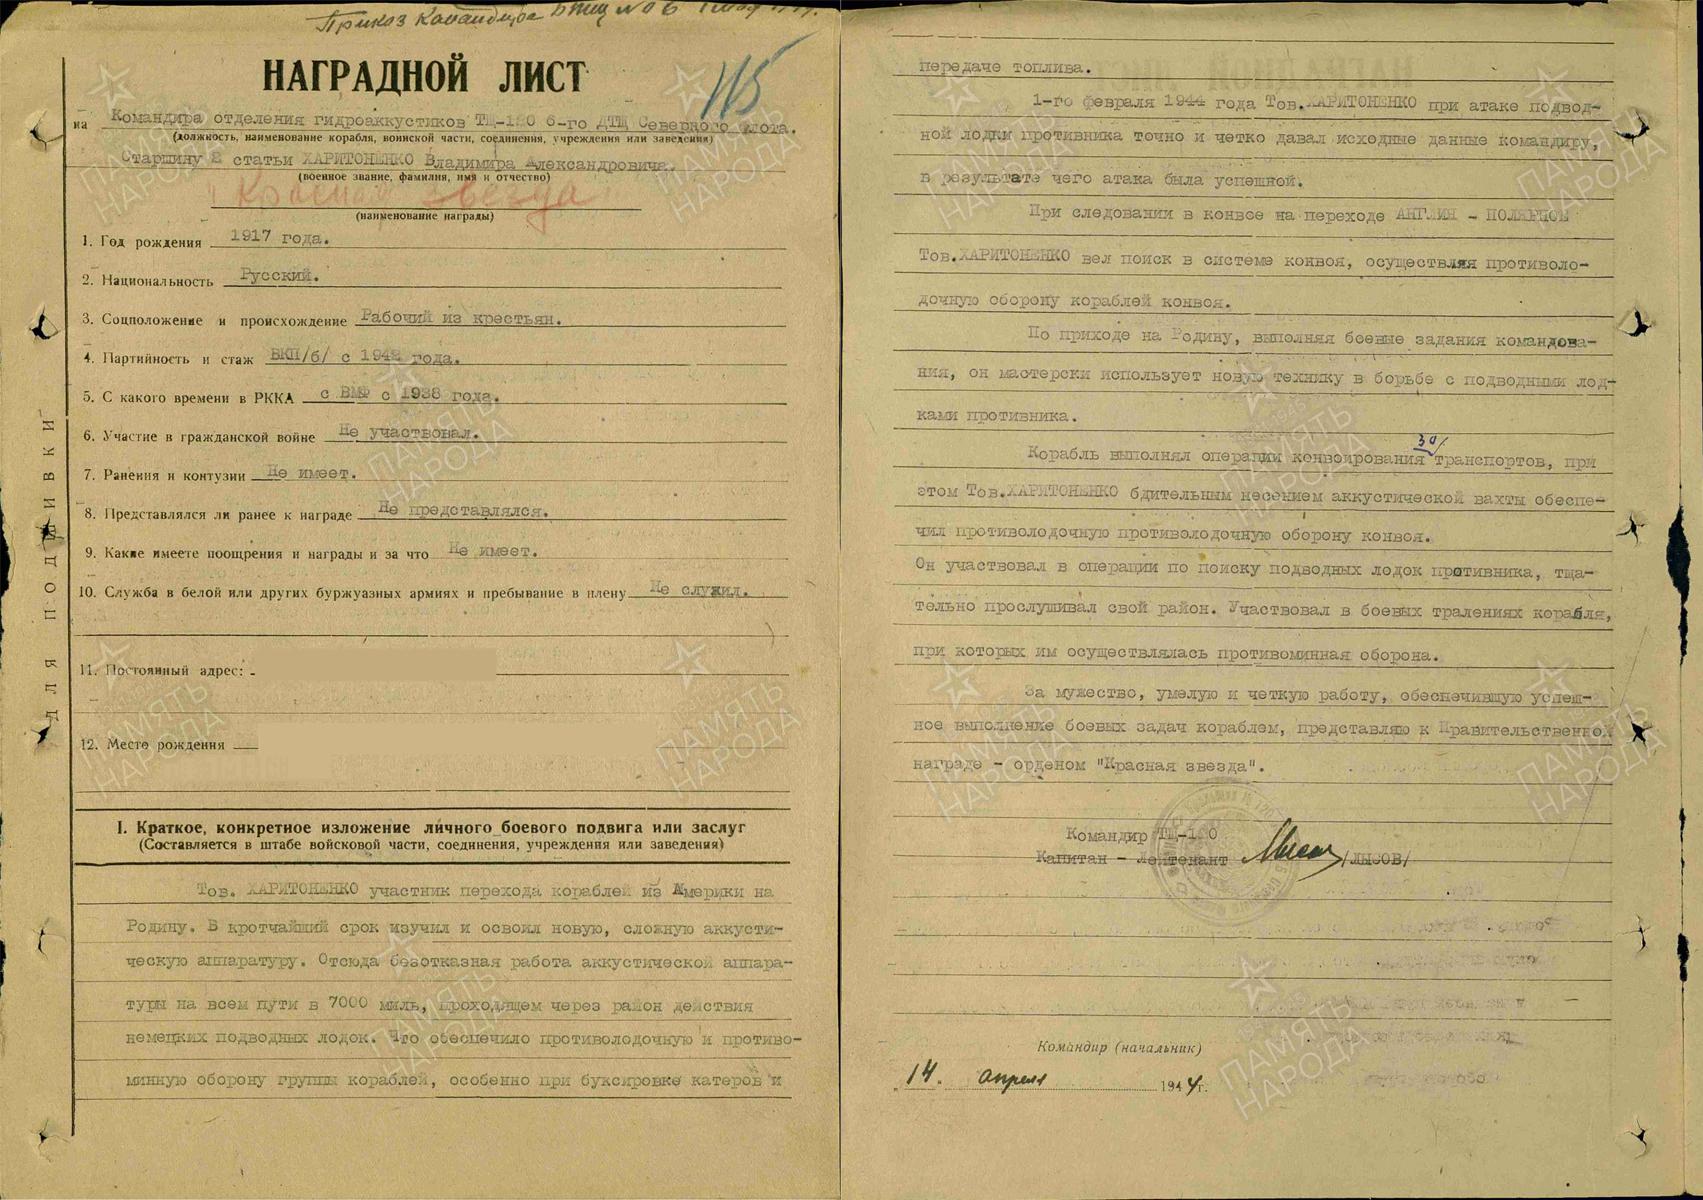 Приказ Командира
115
НАГРАДНОЙ ЛИСТ
на Командира отделения гидроаккустиков ТЩ-120 6-го ДТЩ Северного флота.
(должность, наименование корабля, воинской части, соединения, учреждения или заведения)
Старшину 2 статьи ХАРИТОНЕНКО Владимира Александровича.
(военное звание, фамилия, имя и отчество)
"Красная звезда
(наименование награды)
1. Год рождения 1917 года.
2. Национальность Русский.
3. Соцположение и происхождение Рабочий из крестьян.
4. Партийность и стаж ВКП/б/ с 1942 года.
5. С какого времени в РККА с ВМФ с 1938 года.
6. Участие в гражданской войне Не участвовал.
7. Ранения и контузии Не имеет.
8. Представлялся ли ранее к награде Не представлялся.
9. Какие имеете поощрения и награды и за что Не имеет.
10. Служба в белой или других буржуазных армиях и пребывание в плену Не служил.
11. Постоянный адрес:
12. Место рождения
ДЛЯ ПОДШИВКИ
I. Краткое, конкретное изложение личного боевого подвига или заслуг
(Составляется в штабе войсковой части, соединения, учреждения или заведения)
Тов. ХАРИТОНЕНКО участник перехода кораблей из Америки на
Родину. В кротчайший срок изучил и освоил новую, сложную аккусти-
ческую аппаратуру. Отсюда безотказная работа аккустической аппара-
туры на всем пути в 7000 миль, проходящем через район действия
немецких подводных лодок. Что обеспечило противолодочную и противо-
минную оборону группы кораблей, особенно при буксировке катеров и
передаче топлива.
1-го февраля 1944 года Тов.ХАРИТОНЕНКО при атаке подвод-
ной лодки противника точно и четко давал исходные данные командиру,
в результате чего атака была успешной.
При следовании в конвое на переходе АНГЛИЯ - ПОЛЯРНОЕ
Тов.ХАРИТОНЕНКО вел поиск в системе конвоя, осуществляя противоло-
дочную оборону кораблей конвоя.
По приходе на Родину, выполняя боевые задания командова-
ния, он мастерски использует новую технику в борьбе с подводными лод-
ками противника.
Корабль выполнял операции конвоирования транспортов, при
этом Тов.ХАРИТОНЕНКО бдительным несением аккустической вахты обеспе-
чил противолодочную противолодочную оборону конвоя.
Он участвовал в операции по поиску подводных лодок противника, тща-
тельно прослушивал свой район. Участвовал в боевых тралениях корабля,
при которых им осуществлялась противоминная оборона.
За мужество, умелую и четкую работу, обеспечившую успеш-
ное выполнение боевых задач кораблем, представляю к Правительственной
награде - орденом "Красная звезда".
Командир ТЩ-120
Капитан - Лейтенант /ЛЫСОВ/
Командир (начальник)
„14. апреля 1944г.
ПАМЯТЬ
НАРОДА